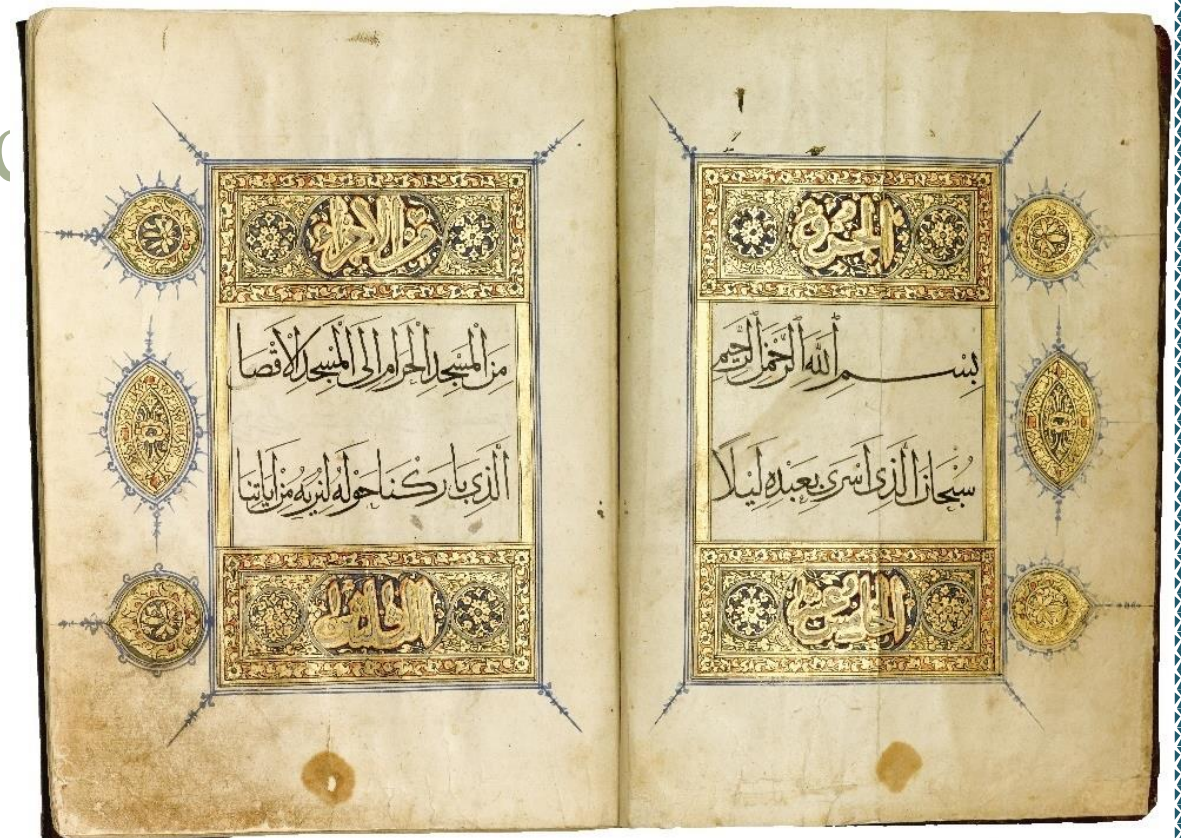 الجزؤ
بِسْمِ ٱللَّهِ ٱلرَّحْمٰنِ ٱلرَّحِيمِ
سُبْحَانَ الَّذِى اَسْرَى بِعَبْدِهِ لَيْلًا
الخامس عشر
من الاجزاء
مِنَ الْمَسْجِدِ الْحَرَامِ اِلَى الْمَسْجِدِ الْاَقْصَا
الَّذِى بَارَكْنَا حَوْلَهُ لِنُرِيَهُ مِنْ اٰيَاتِنَا
الثلاثين